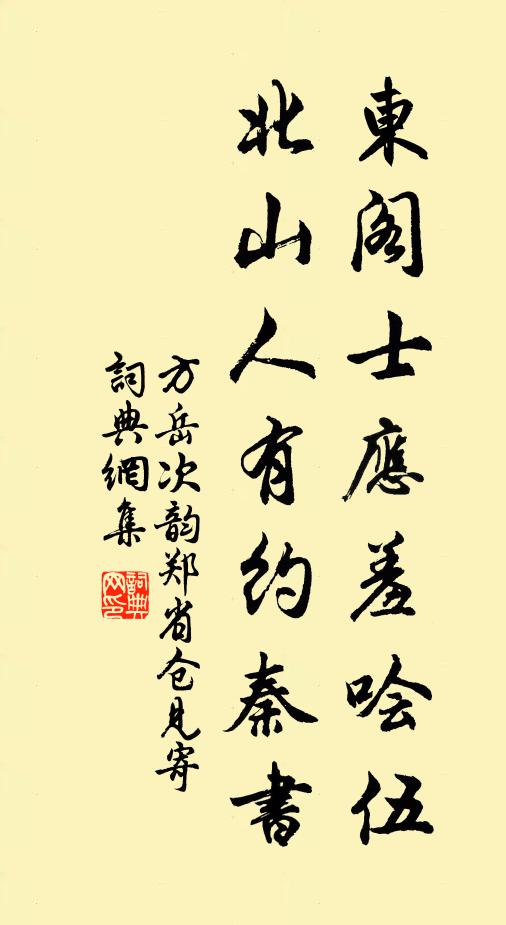 東阁士應羞哙伍
北山人有约秦書
方岳次韵郑省仓见寄
詞典網集
詞典网印